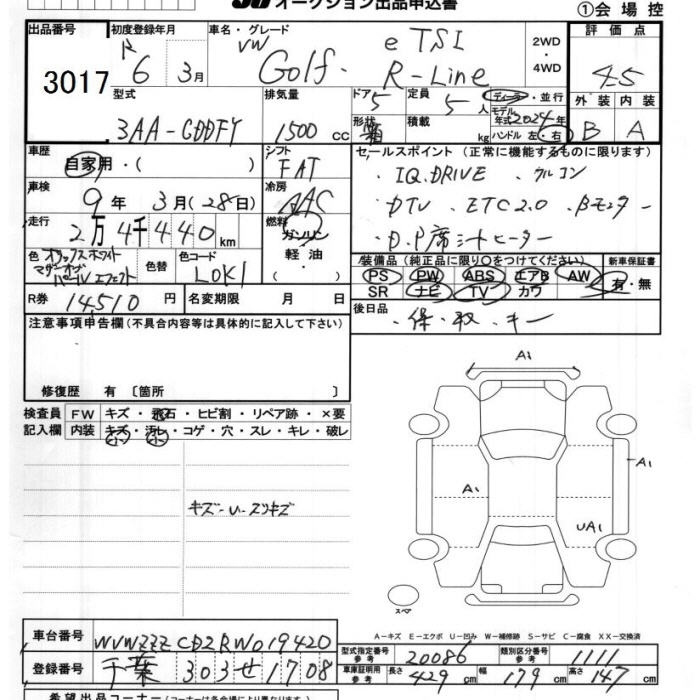 オークション出品申込書
①会場控
出品番号 3017
初度登録年月 R 6 3月
車名・グレード VW Golf・eTSI R-Line
2WD・4WD
評価点 4.5
外装 B 内装 A
型式 3AA-CDDFY
排気量 1500 cc
ドア 5
形状 箱
定員 5人
積載 kg
ディーラー・並行
モデル年式 2024年
ハンドル 左・右
車歴 自家用・( )
シフト FAT
セールスポイント(正常に機能するものに限ります)
・IQ.DRIVE ・クルコン
・DTV ・ETC2.0 ・Bモニター
・D.P席シートヒーター
車検 9年 3月(28日)
冷房 AAC
走行 2万4千440km
燃料 ガソリン・軽油・( )
色 オリックスホワイトマザーオブパールエフェクト
色替
色コード L0K1
装備品(純正品に限り○をつけてください) 新車保証書
PS PW ABS エアB AW 有・無
SR ナビ TV カワ
R券 14,510円
名変期限 月 日
後日品 ・保・取・キー
注意事項申告欄(不具合内容等は具体的に記入して下さい)
修復歴 有〔箇所 〕
検査員記入欄 FW キズ・飛石・ヒビ割・リペア跡・×要
内装 キズ・汚レ・コゲ・穴・スレ・キレ・破レ
小 小
キズ-U-スリキズ
A1
A1
A1
UA1
スペア
A-キズ E-エクボ U-凹み W-補修跡 S-サビ C-腐食 XX-交換済
車台番号 WVWZZZCDZRW019420
登録番号 千葉 303 せ 1708
型式指定番号 参考 20086 類別区分番号 参考 1111
車検証用 参考 長さ 429cm 幅 179cm 高さ 147cm
希望出品コーナー(コーナーは各会場により異なります)